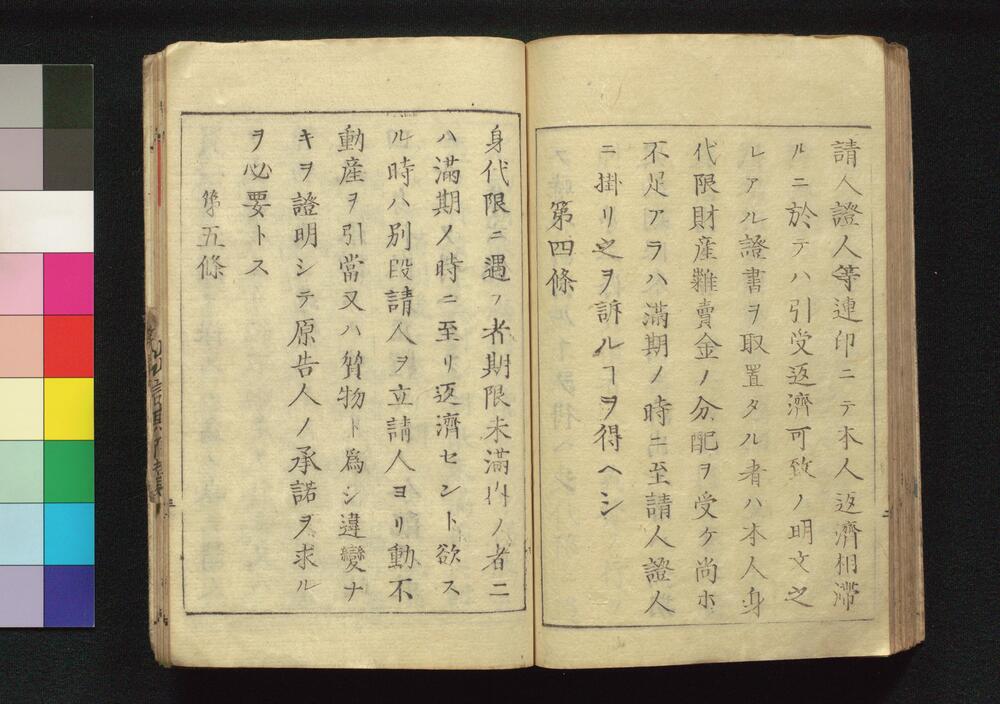 請人證人等連印ニテ本人返濟相滯
ルニ於テハ引受返濟可致ノ明文之
レアル證書ヲ取置タル者ハ本人身
代限財産糶賣金ノ分配ヲ受ケ尚ホ
不足アラハ滿期ノ時ニ至請人證人
ニ掛リ之ヲ訴ルヿヲ得ヘシ
第四條
身代限ニ遇フ者期限未滿内ノ者ニ
ハ滿期ノ時ニ至リ返濟セント欲ス
ル時ハ別段請人ヲ立請人ヨリ動不
動産ヲ引當又ハ質物ト爲シ違變ナ
キヲ證明シテ原告人ノ承諾ヲ求ル
ヲ必要トス
第五條